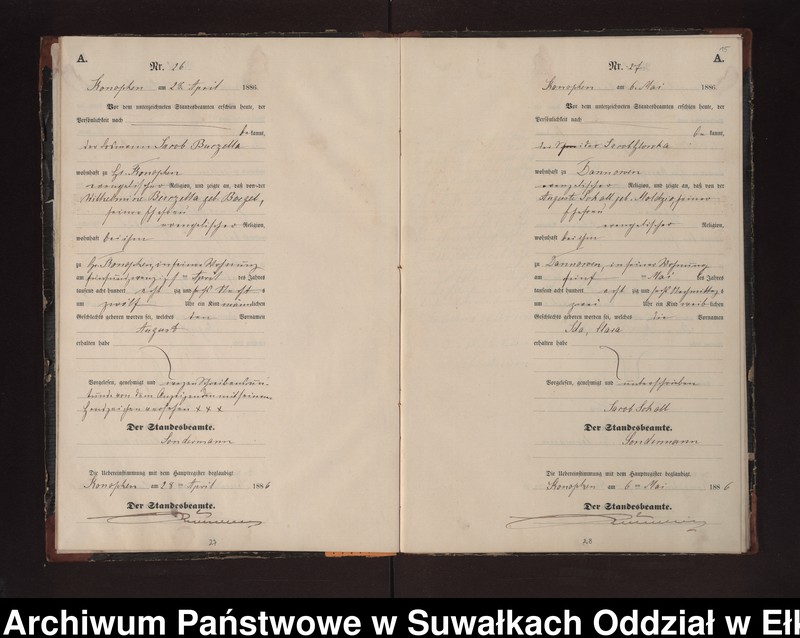 A.
Nr. 26
Konopken am 28 April 1886.
Vor dem unterzeichneten Standesbeamten erschien heute, der
Persönlichkeit nach
be kannt,
der Jacob Burzella
wohnhaft zu Gr. Konopken
evangelischer Religion, und zeigte an, daß von der
Wilhelmine Burzella geb.
seiner Ehefrau
evangelischer Religion,
wohnhaft bei ihm
zu Gr. Konopken, in seiner Wohnung
am April des Jahres
tausend acht hundert acht zig und sechs Nachts
um zwölf Uhr ein Kind männlichen
Geschlechts geboren worden sei, welches den Vornamen
August
erhalten habe
Vorgelesen, genehmigt und wegen Schreibensun-
kunde von dem Anzeigenden mit seinem
Handzeichen versehen + + +
Der Standesbeamte.
Sondermann
Die Uebereinstimmung mit dem Hauptregister beglaubigt
Konopken am 28 ten April 1886
Der Standesbeamte.
27
A.
Nr. 27
Konopken am 6. Mai 1886.
Vor dem unterzeichneten Standesbeamten erschien heute, der
Persönlichkeit nach
be kannt,
der
wohnhaft zu Dannowen
evangelischer Religion, und zeigte an, daß von der
Auguste Schall geb. seiner
Ehefrau
evangelischer Religion,
wohnhaft bei ihm
zu Dannowen, in seiner Wohnung
am fünf ten Mai des Jahres
tausend acht hundert acht zig und sechs Nachmittags
um zwei Uhr ein Kind weib lichen
Geschlechts geboren worden sei, welches die Vornamen
Ida, Maria
erhalten habe
Vorgelesen, genehmigt und unterschrieben
Jacob Schall
Der Standesbeamte.
Sondermann
Die Uebereinstimmung mit dem Hauptregister beglaubigt
Konopken am 6 ten Mai 1886
Der Standesbeamte.
28
Archiwum Państwowe w Suwałkach Oddział w Ełk